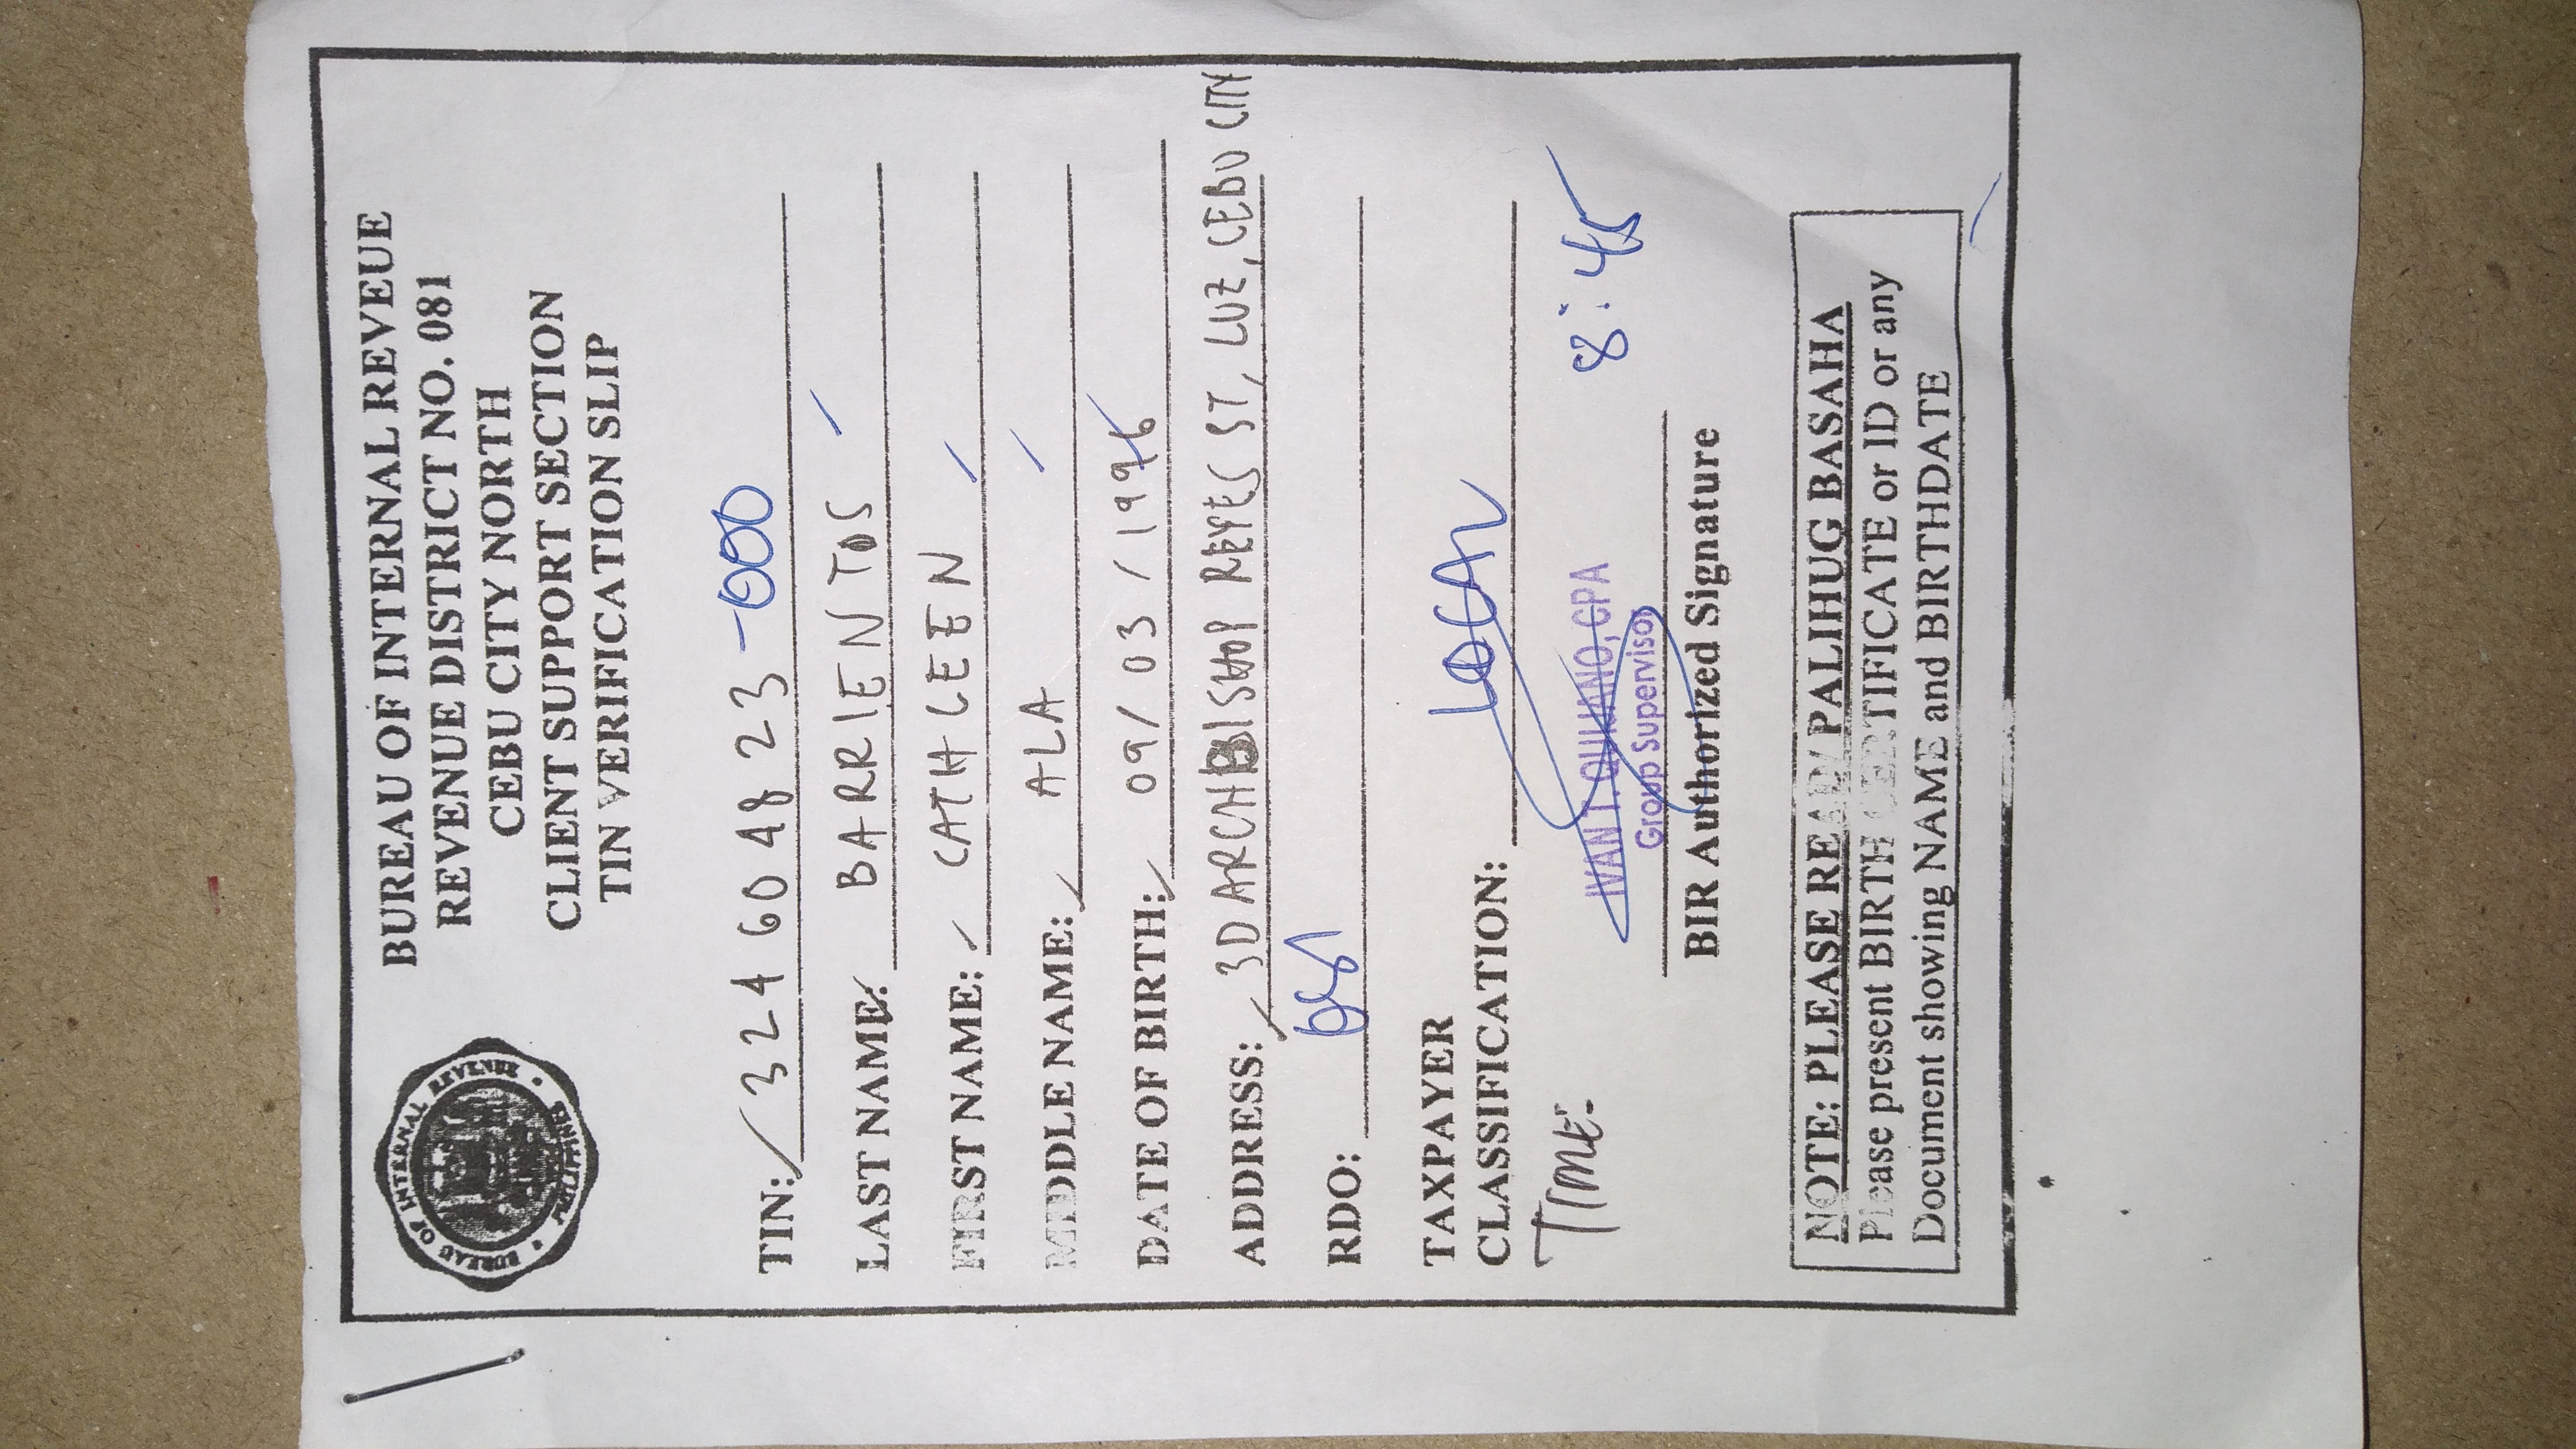 BUREAU OF INTERNAL REVEUE
REVENUE DISTRICT NO. 081
CEBU CITY NORTH
CLIENT SUPPORT SECTION
TIN VERIFICATION SLIP
BUREAU OF INTERNAL REVENUE
PHILIPPINES
TIN: 324604823-000
LAST NAME: BARRIENTOS
FIRST NAME: CATHLEEN
MIDDLE NAME: ALA
DATE OF BIRTH: 09/03/1996
ADDRESS: 3D ARCHBISHOP REYES ST, LUZ, CEBU CITY
RDO: 081
TAXPAYER
CLASSIFICATION:
TIME: 8:45
IVAN T. QUIJANO, CPA
Group Supervisor
BIR Authorized Signature
NOTE: PLEASE READ/ PALIHUG BASAHA
Please present BIRTH CERTIFICATE or ID or any
Document showing NAME and BIRTHDATE